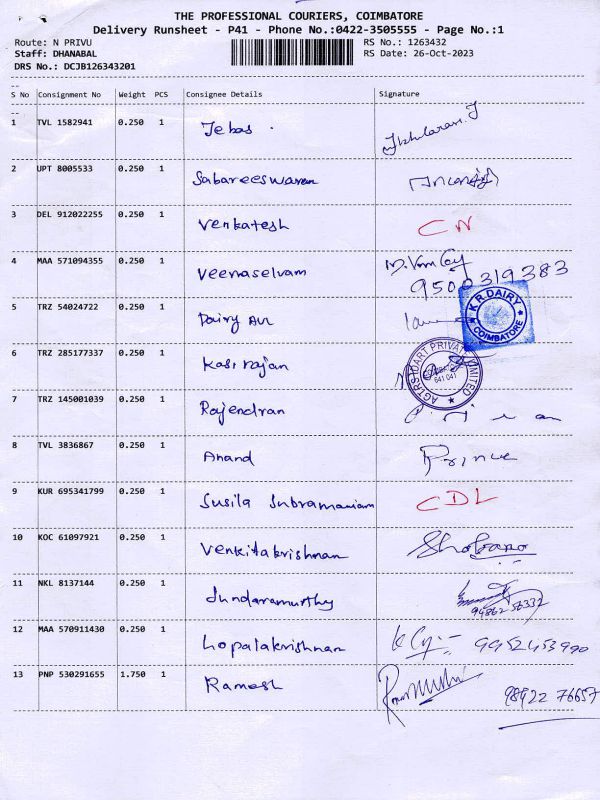 THE PROFESSIONAL COURIERS, COIMBATORE
Delivery Runsheet - P41 - Phone No.:0422-3505555 - Page No.:1
Route: N PRIVU RS No.: 1263432
Staff: DHANABAL RS Date: 26-Oct-2023
DRS No.: DCJB126343201
--
S No Consignment No Weight PCS Consignee Details Signature
--
1 TVL 1582941 0.250 1 Jebas .
2 UPT 8005533 0.250 1 Sabareeswaran
3 DEL 912022255 0.250 1 Venkatesh CN
4 MAA 571094355 0.250 1 Veeraselvam
9500319383
5 TRZ 54024722 0.250 1 Dairy K.R.DAIRY COIMBATORE
6 TRZ 285177337 0.250 1 Kasi rajan PRIVATE LIMITED 641 041
7 TRZ 145001039 0.250 1 Rajendran
8 TVL 3836867 0.250 1 Anand Prince
9 KUR 695341799 0.250 1 Susila Subramaniam CDL
10 KOC 61097921 0.250 1 Venkitakrishnan
11 NKL 8137144 0.250 1 Sundaramurthy
12 MAA 570911430 0.250 1 Gopalakrishnan
13 PNP 530291655 1.750 1 Ramesh 98922 76657